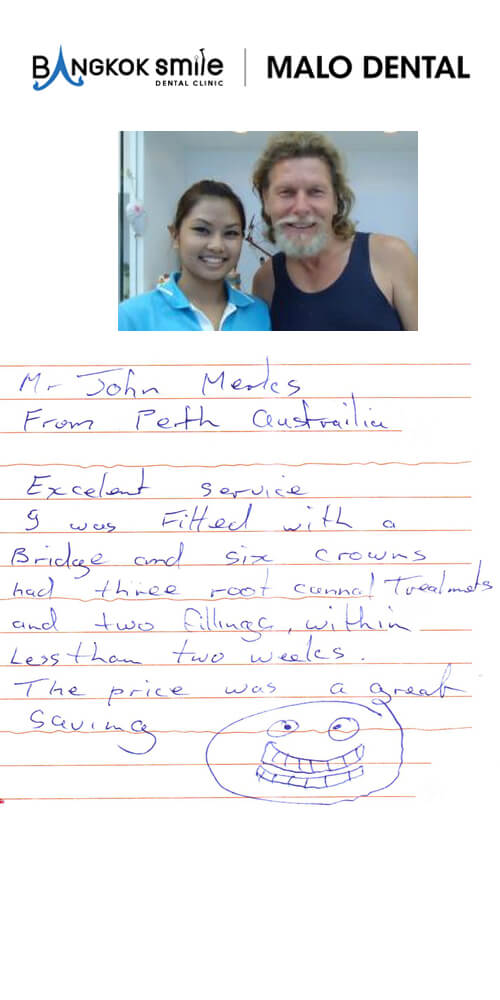 BANGKOK smile
DENTAL CLINIC
MALO DENTAL
Mr John
From Perth Australia
Excelent service
I was Fitted with a
Bridge and six crowns
had three root cannal Treatmets
and two fillings, within
Less than two weeks.
The price was a great
Saving